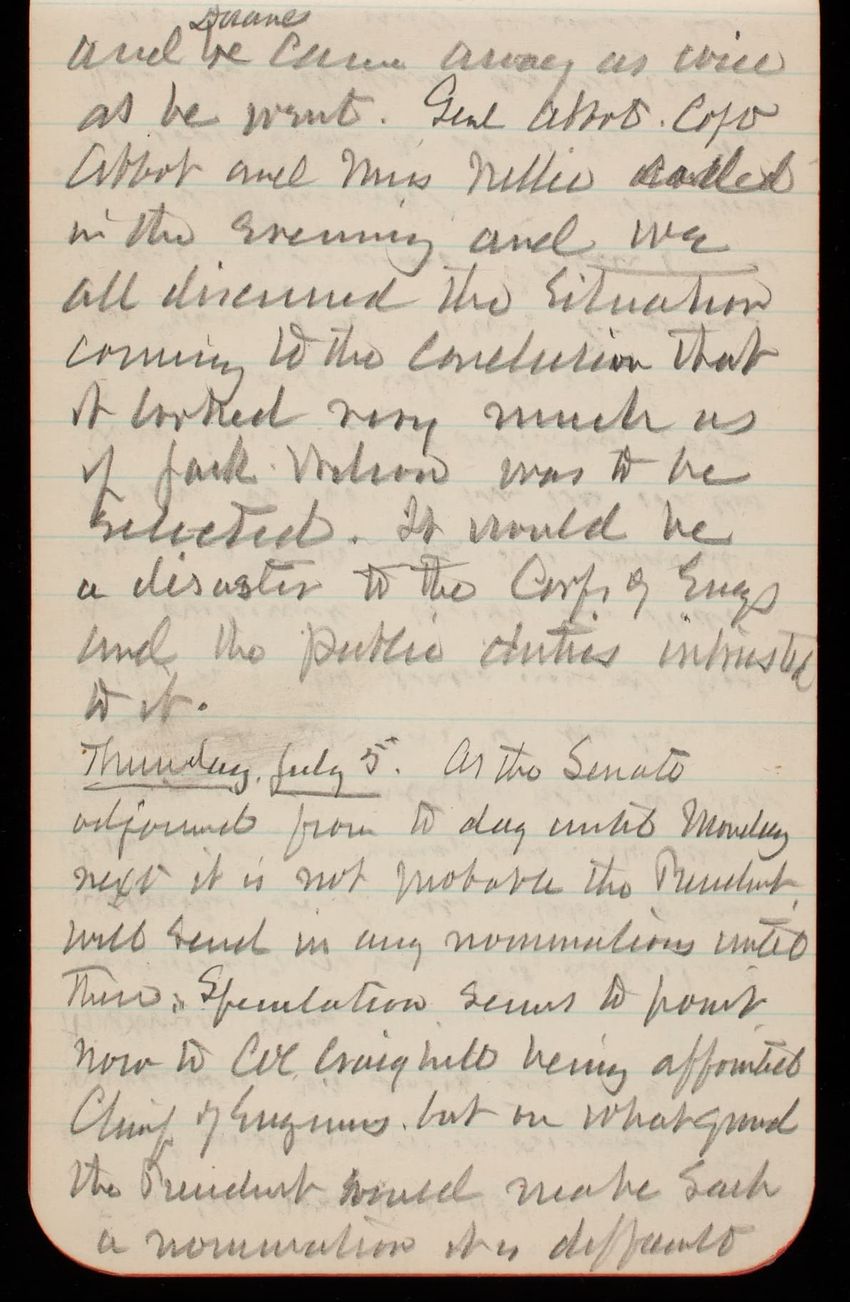 Duane
and he came away as wise
as he went. Genl Abbot. Capt
Abbot and Miss Nellie called
in the evening and we
all discussed the situation
coming to the conclusion that
it looked very much as
if Jack Wilson was to be
selected. It would be
a disaster to the Corps of Engs
and the public duties intrusted
to it.
Thursday, July 5. As the Senate
adjourned from to day until Monday
next it is not probable the President
will send in any nominations until
then. Speculation seems to point
now to Col Craighill being appointed
Chief of Engineers. but on what ground
the President would make such
a nomination it is difficult